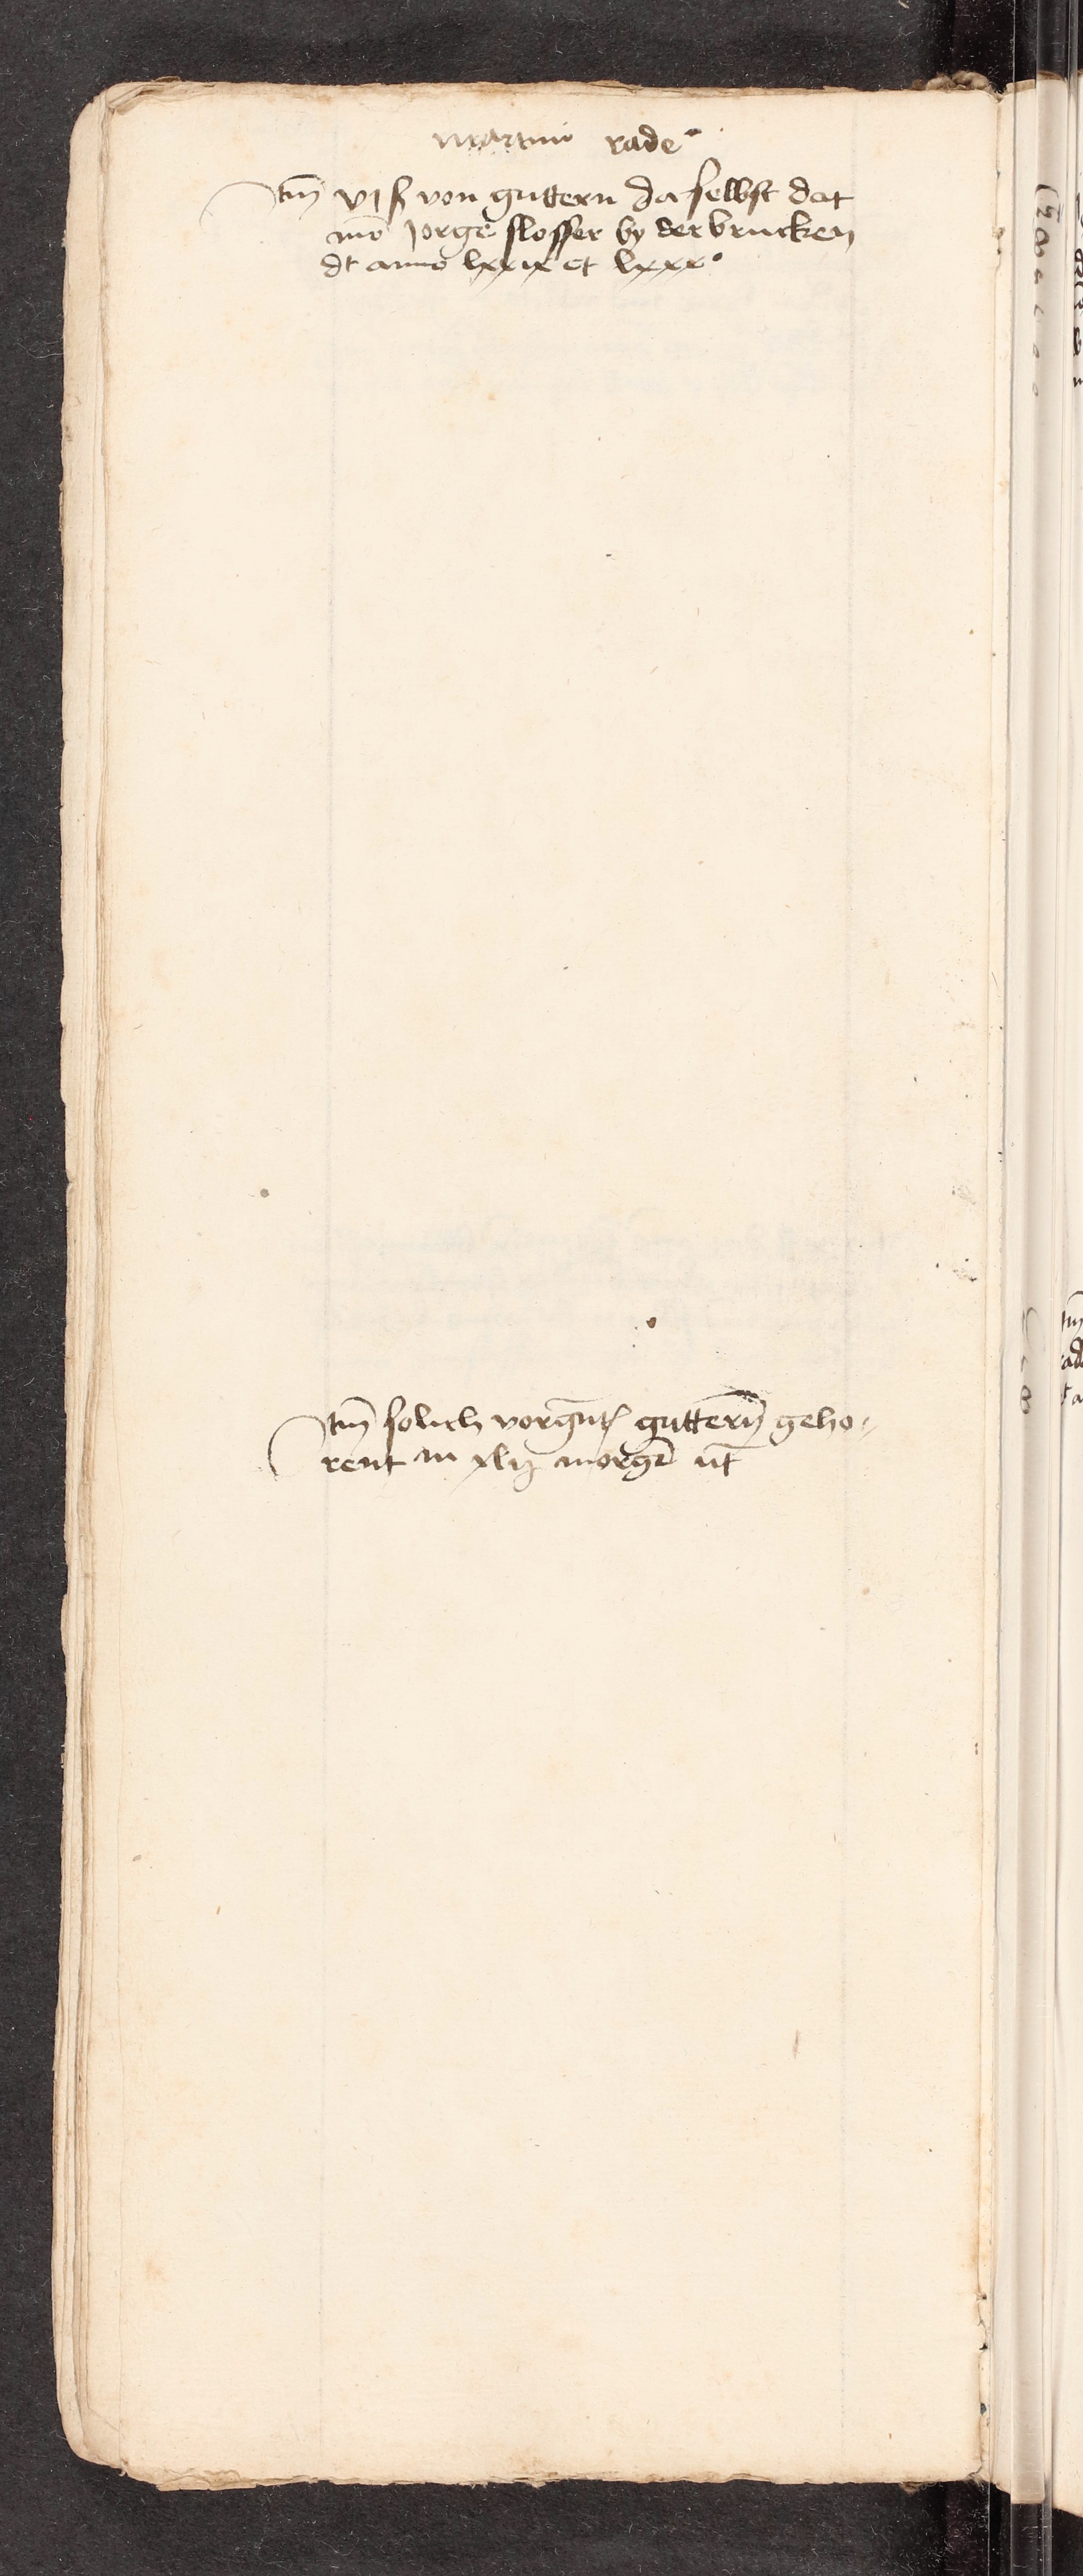 martini rade
Itm̄ vi ß von guttern da selbst dat
mo᷑ Jorge slosser by der brucken
dt anno lxxix et lxxx°
Itm̄ solich vorgnt guttern̄ geho-
rent in xlij morgē ut